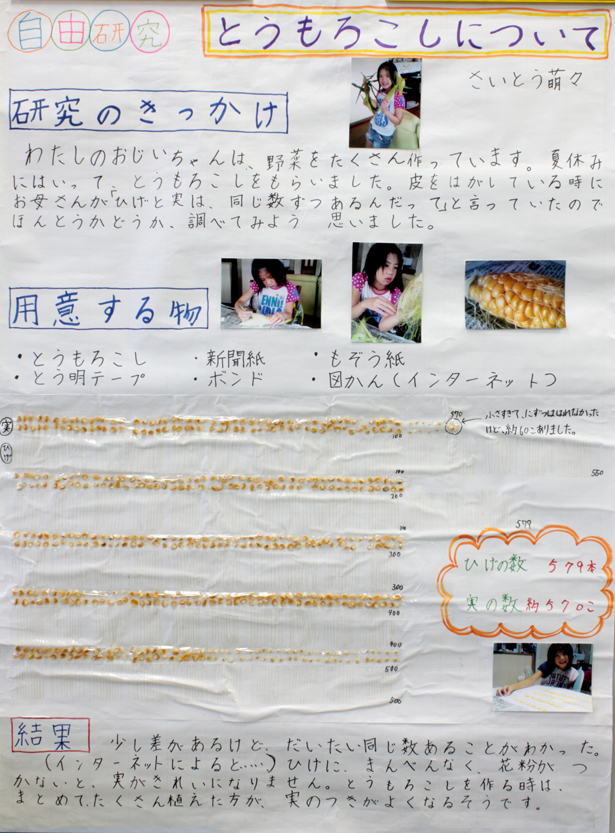 自由研究
とうもろこしについて
さいとう萌々
研究のきっかけ
わたしのおじいちゃんは、野菜をたくさん作っています。夏休み
にはいって、とうもろこしをもらいました。皮をはがしている時に
お母さんが「ひげと実は、同じ数ずつあるんだって」と言っていたので
ほんとうかどうか、調べてみよう 思いました。
用意する物
・とうもろこし ・新聞紙 ・もぞう紙
・とう明テープ ・ボンド ・図かん(インターネット)
実
ひげ
570
小さすぎて、にずつははれなかった
けど、約60こありました。
100
100
200
550
579
300
300
400
400
500
500
ひげの数 579本
実の数 約570こ
結果
少し差があるけど、だいたい同じ数あることがわかった。
(インターネットによると……)ひげに、まんべんなく、花粉が つ
かないと、実がきれいになりません。とうもろこしを作る時は、
まとめて、たくさん植えた方が、実のつきがよくなるそうです。